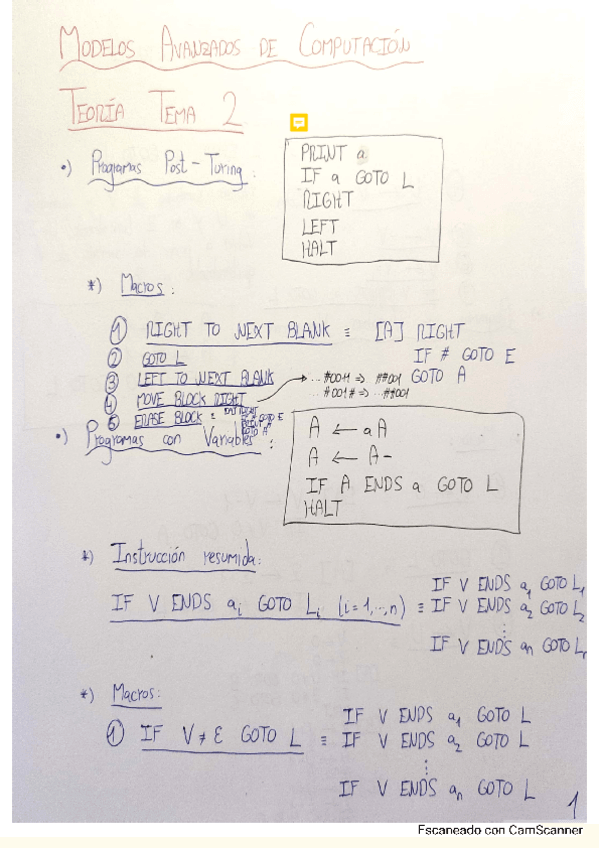 MODELOS AVANZADOS DE COMPUTACIÓN
TEORÍA TEMA 2
•) Programas Post-Turing:
PRINT a
IF a GOTO L
RIGHT
LEFT
HALT
*) Macros:
① RIGHT TO NEXT BLANK ≡ [A] RIGHT
IF # GOTO E
GOTO A
② GOTO L
③ LEFT TO NEXT BLANK
④ MOVE BLOCK RIGHT → ...#0011 => ##001
#001# => ...##001
⑤ ERASE BLOCK ≡ [A] RIGHT
IF # GOTO E
PRINT #
GOTO A
•) Programas con Variables:
A ← aA
A ← A-
IF A ENDS a GOTO L
HALT
*) Instrucción resumida:
IF V ENDS aᵢ GOTO Lᵢ (i=1,...,n) ≡ IF V ENDS a₁ GOTO L₁
IF V ENDS a₂ GOTO L₂
⋮
IF V ENDS aₙ GOTO Lₙ
*) Macros:
① IF V ≠ ε GOTO L ≡ IF V ENDS a₁ GOTO L
IF V ENDS a₂ GOTO L
⋮
IF V ENDS aₙ GOTO L
1
Escaneado con CamScanner